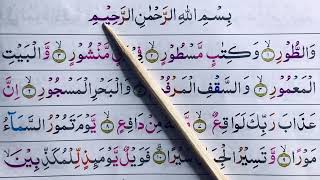 بِسْمِ اللهِ الرَّحْمٰنِ الرَّحِيْمِ
وَالطُّوْرِ ۙ﴿١﴾ وَكِتٰبٍ مَّسْطُوْرٍ ۙ﴿٢﴾ فِيْ مَّنْشُوْرٍ ۙ﴿٣﴾ وَّالْبَيْتِ
الْمَعْمُوْرِ ۙ﴿٤﴾ وَالسَّقْفِ الْمَرْفُوْعِ ۙ﴿٥﴾ وَالْبَحْرِ الْمَسْجُوْرِ ۙ﴿٦﴾ اِنَّ
عَذَابَ رَبِّكَ لَوَاقِعٌ ۙ﴿٧﴾ مِنْ دَافِعٍ ۙ﴿٨﴾ يَّوْمَ تَمُوْرُ السَّمَآءُ
مَوْرًا ۙ﴿٩﴾ وَّتَسِيْرُ الْجِبَالُ سَيْرًا ؕ﴿١٠﴾ فَوَيْلٌ يَّوْمَئِذٍ لِّلْمُكَذِّبِيْنَ